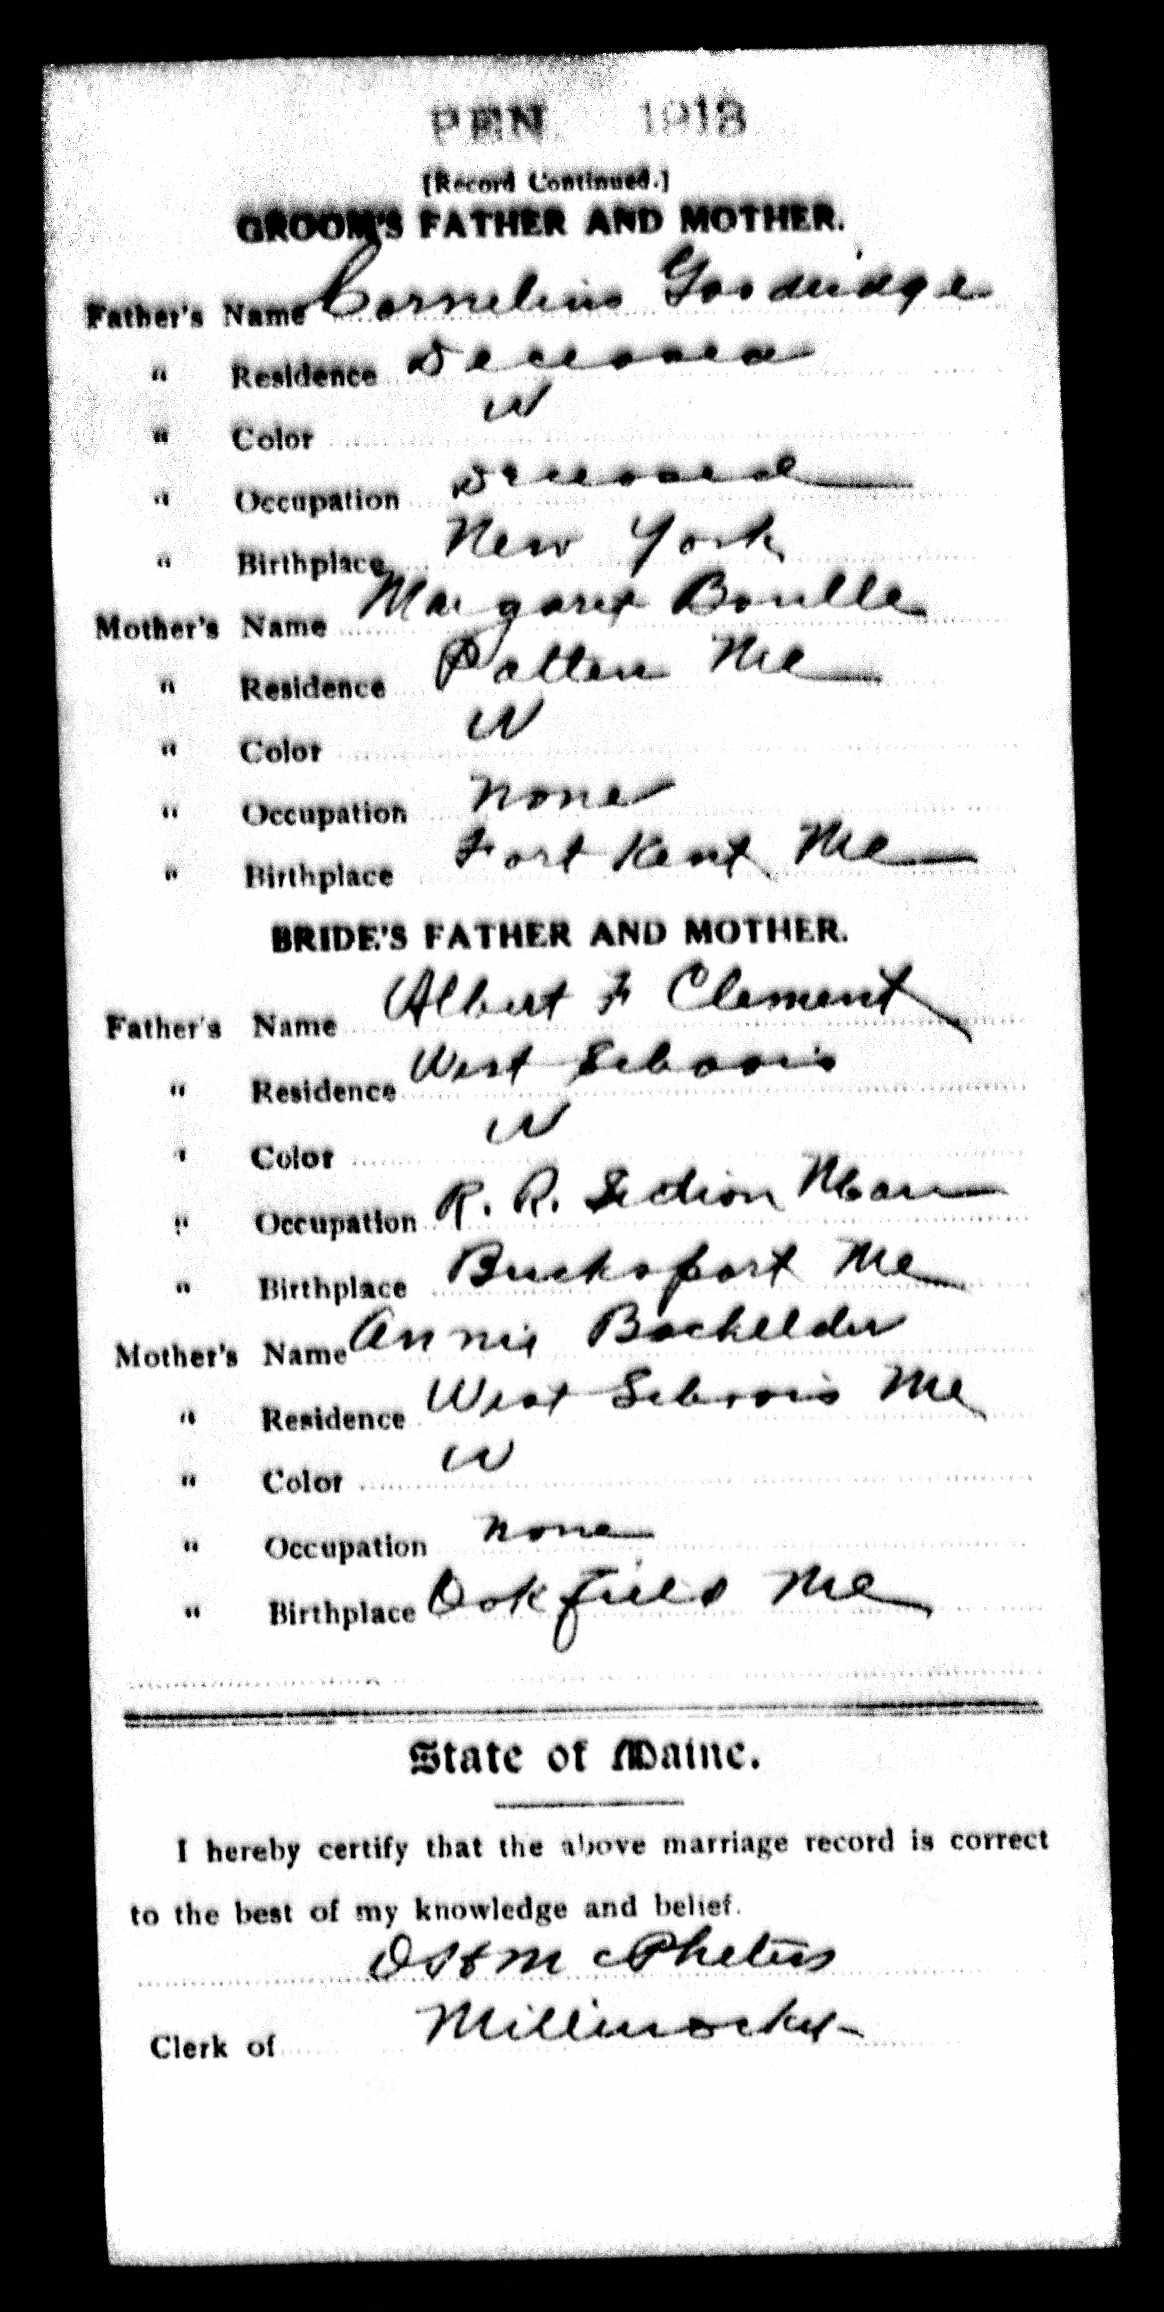 PEN 1913
(Record Continued.)
GROOM'S FATHER AND MOTHER.
Father's Name Cornelius Goodridge
" Residence Deceased
" Color W
" Occupation Deceased
" Birthplace New York
Mother's Name Margaret Boulle
" Residence Patten Me
" Color W
" Occupation None
" Birthplace Fort Kent Me
BRIDE'S FATHER AND MOTHER.
Father's Name Albert F Clement
" Residence West Seboois
" Color W
" Occupation R. R. Section Man
" Birthplace Bucksport Me
Mother's Name Annie Bachelder
" Residence West Seboois Me
" Color W
" Occupation None
" Birthplace Oakfield Me
State of Maine.
I hereby certify that the above marriage record is correct
to the best of my knowledge and belief.
McPheters
Clerk of Millinocket